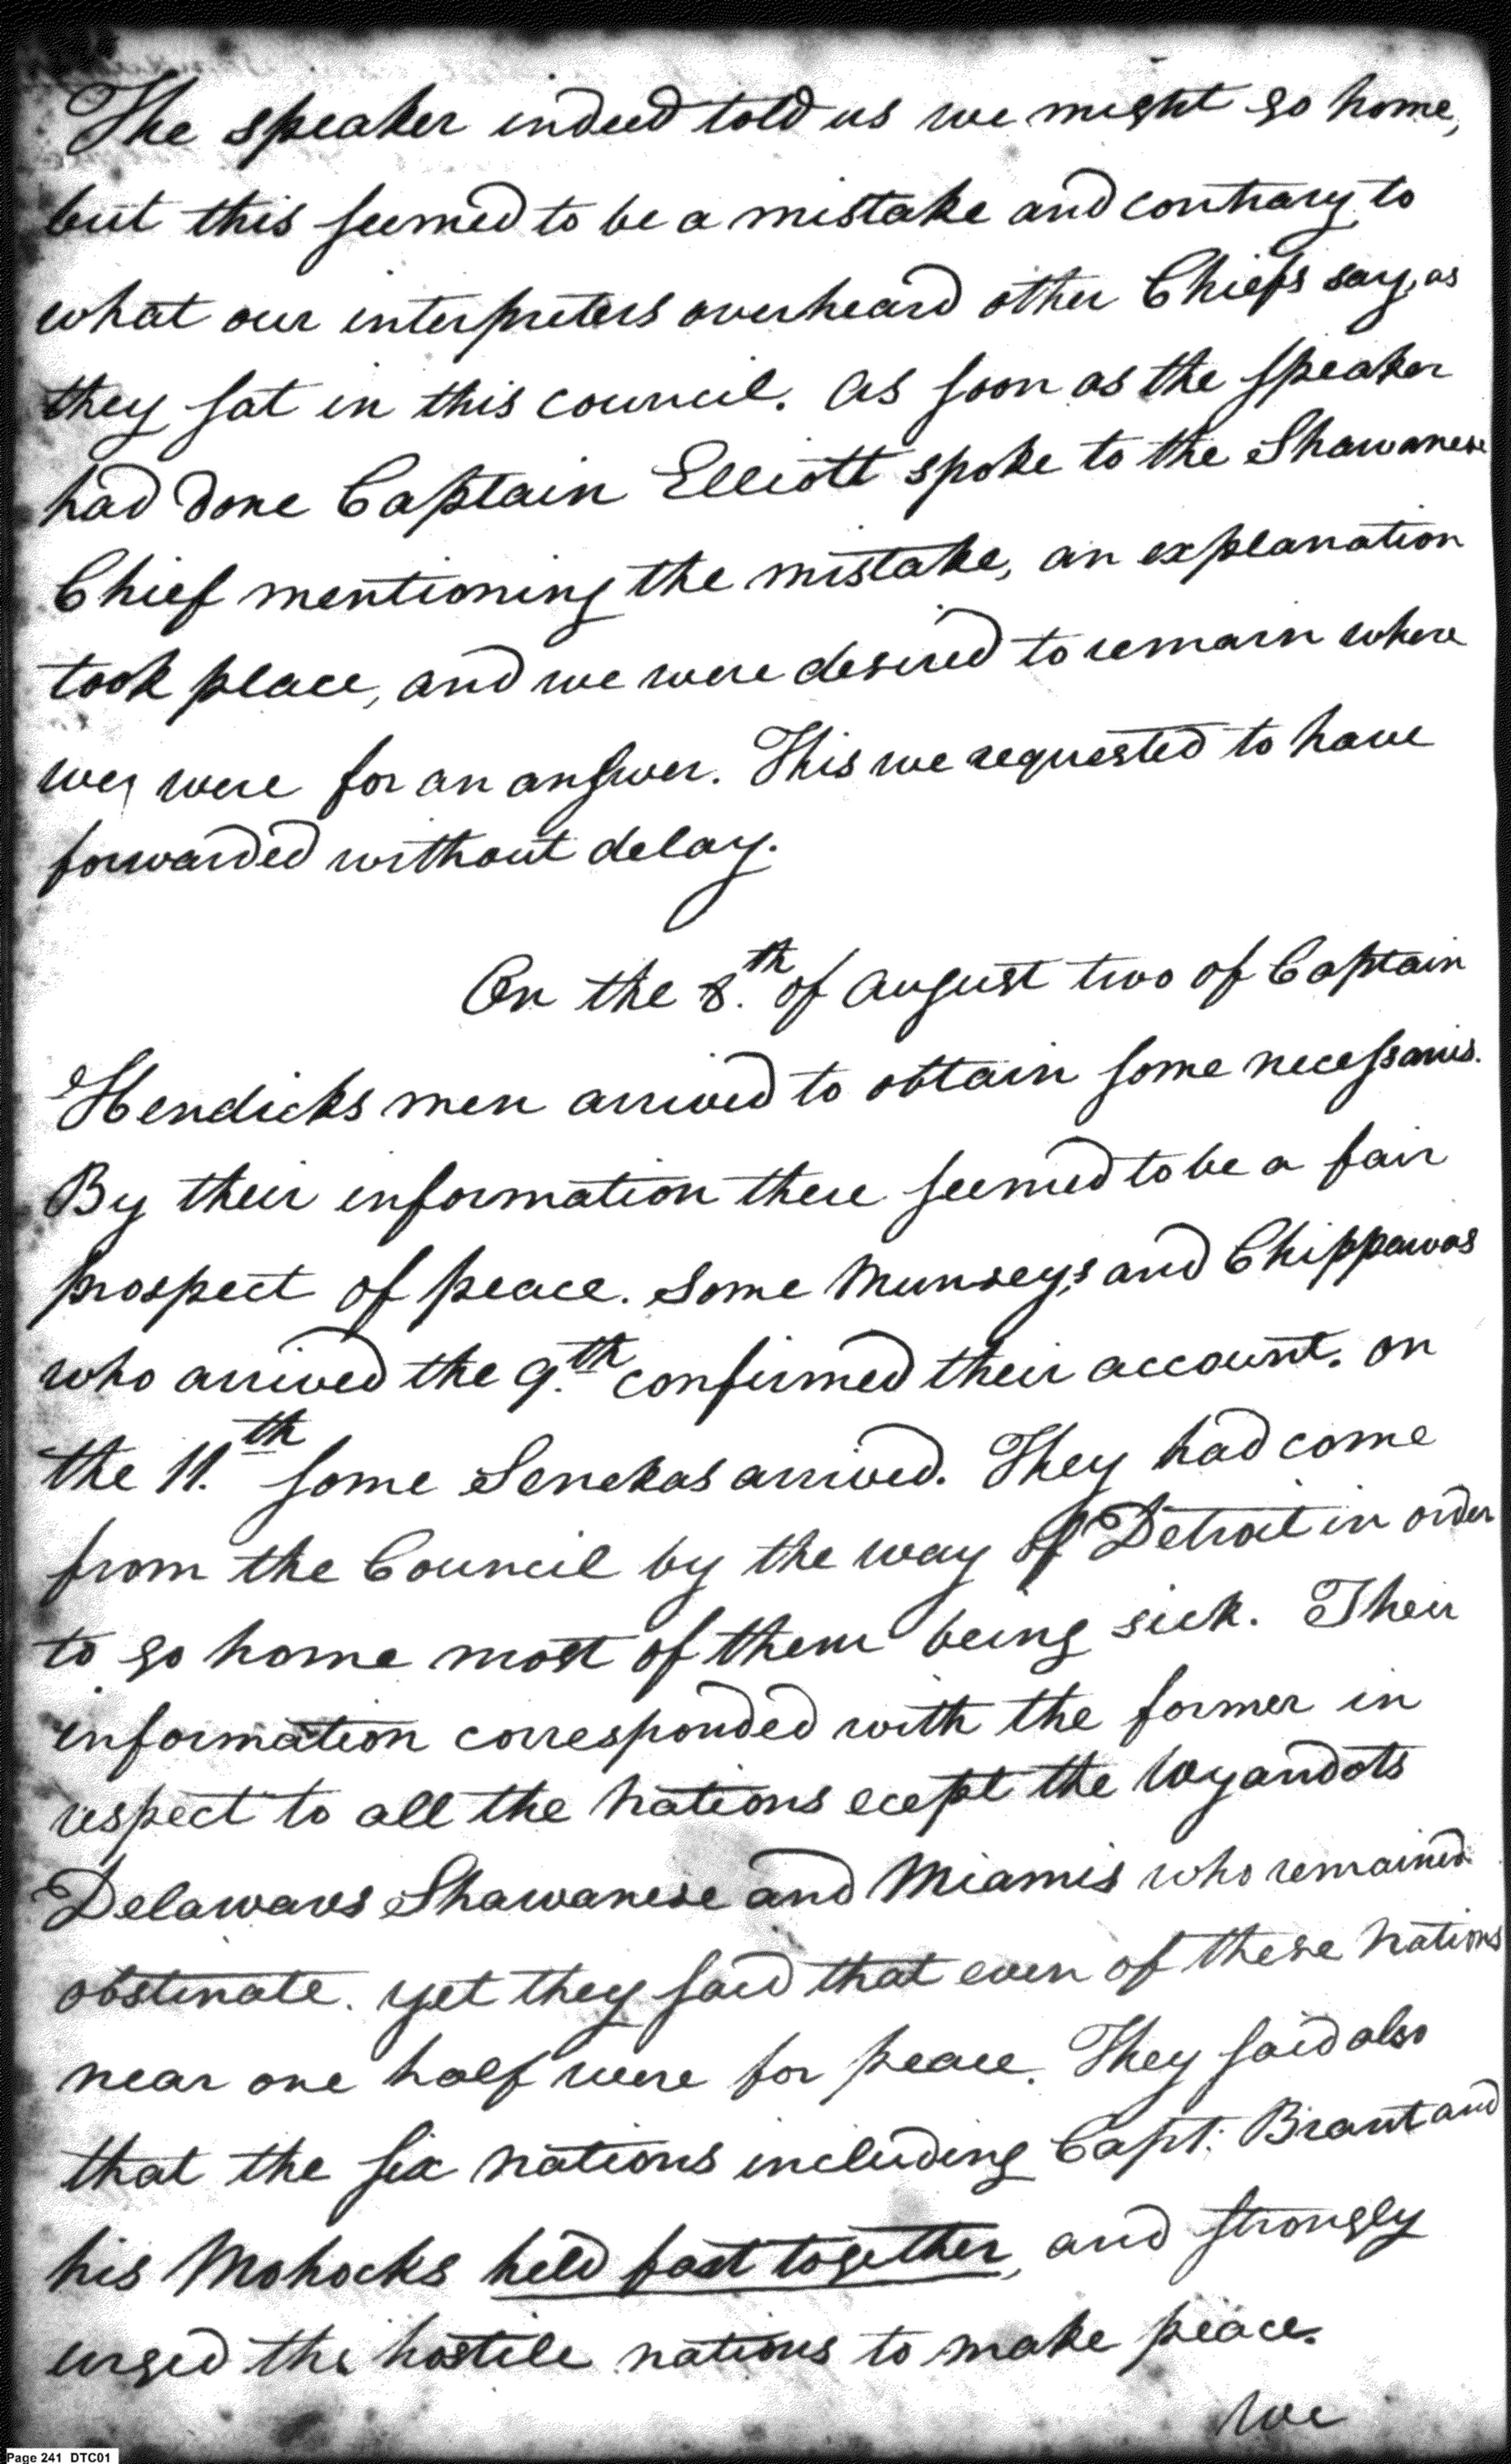 The speaker indeed told us we might go home,
but this seemed to be a mistake and contrary to
what our interpreters overheard other Chiefs say, as
they sat in this council. As soon as the speaker
had done Captain Elliott spoke to the Shawanese
Chief mentioning the mistake, an explanation
took place, and we were desired to remain where
we were for an answer. This we requested to have
forwarded without delay.
On the 8.th of August two of Captain
Hendicks men arrived to obtain some necessaries.
By their information there seemed to be a fair
prospect of peace. Some Munseys, and Chippawas
who arrived the 9.th confirmed their account. On
the 11.th some Senekas arrived. They had come
from the Council by the way of Detroit in order
to go home most of them being sick. Their
information corresponded with the former in
respect to all the Nations ecept the Wyandots
Delawares Shawanese and Miamis who remained
obstinate. yet they said that even of these Nations
near one half were for peace. They said also
that the six Nations including Capt: Brant and
his Mohocks held fast together, and strongly
urged the hostile nations to make peace.
We
Page 241 DTC01